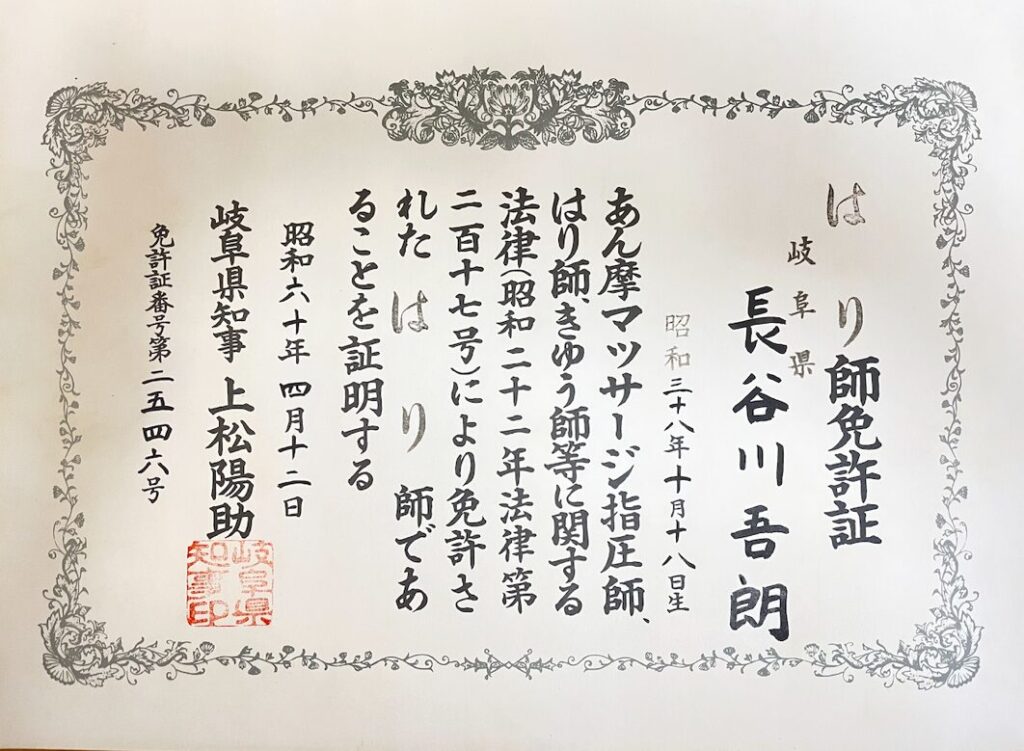 はり師免許証
岐阜県
長谷川吾朗
昭和三十八年十月十八日生
あん摩マツサージ指圧師、
はり師、きゆう師等に関する
法律(昭和二十二年法律第
二百十七号)により免許さ
れたはり師であ
ることを証明する
昭和六十年四月十二日
岐阜県知事 上松陽助
岐阜県
知事印
免許証番号第二五四六号